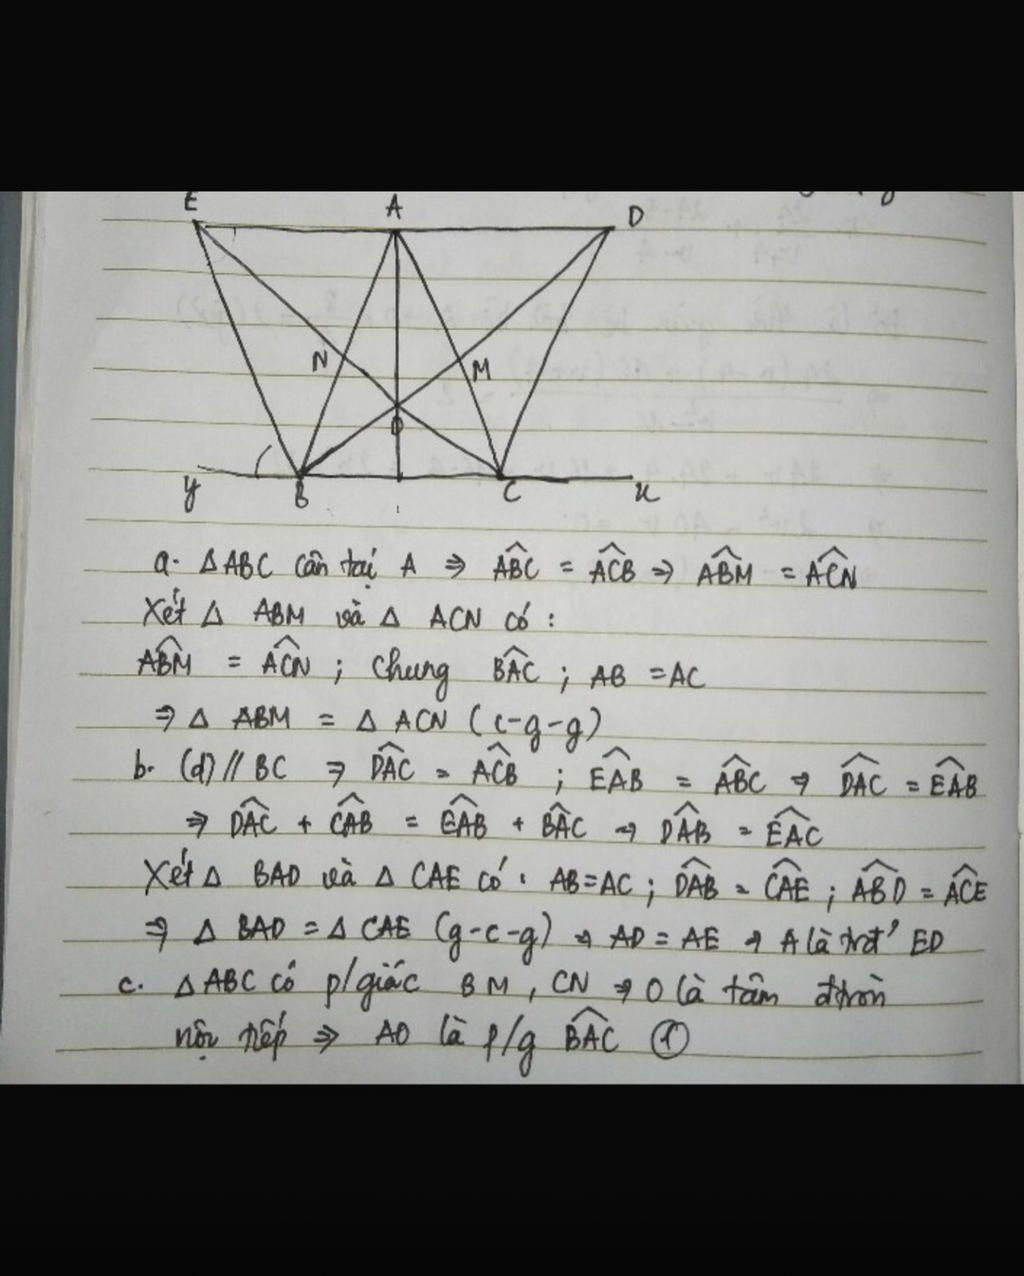 E A D
N M
O
y B C x
a. △ABC cân tại A ⇒ ∠ABC = ∠ACB ⇒ ∠ABM = ∠ACN
Xét △ ABM và △ ACN có :
∠ABM = ∠ACN ; chung ∠BAC ; AB = AC
⇒ △ ABM = △ ACN (c-g-g)
b. (d) // BC ⇒ ∠DAC = ∠ACB ; ∠EAB = ∠ABC ⇒ ∠DAC = ∠EAB
⇒ ∠DAC + ∠CAB = ∠EAB + ∠BAC ⇒ ∠DAB = ∠EAC
Xét △ BAD và △ CAE có : AB=AC ; ∠DAB = ∠CAE ; ∠ABD = ∠ACE
⇒ △ BAD = △ CAE (g-c-g) ⇒ AD = AE ⇒ A là trđ' ED
c. △ABC có p/giác BM, CN ⇒ O là tâm đtròn
nội tiếp ⇒ AO là p/g ∠BAC ①